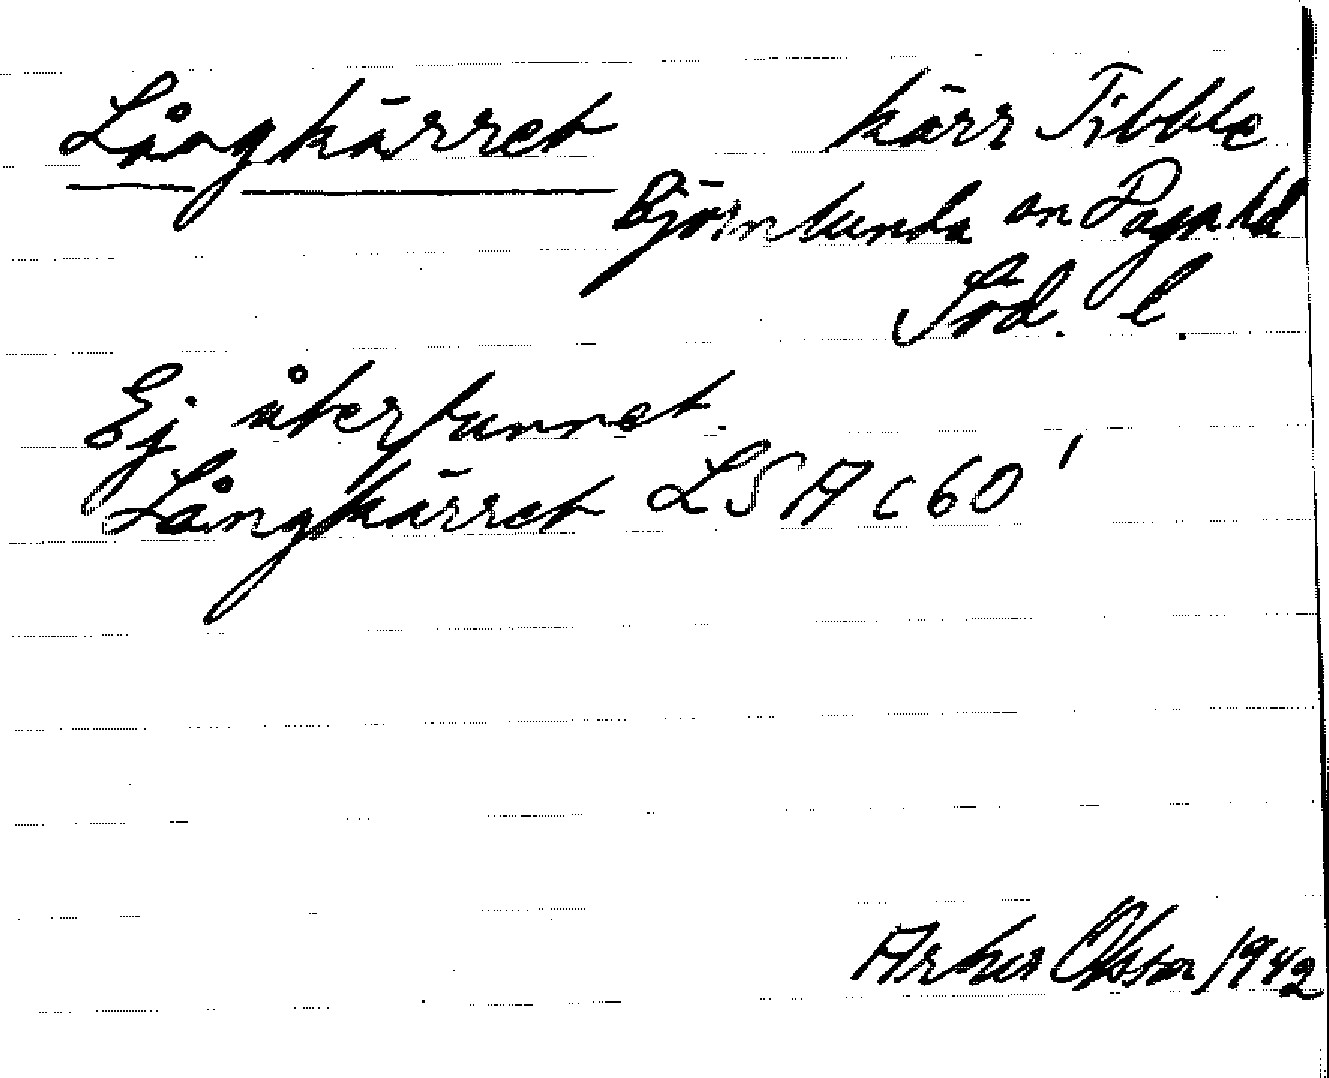 Långkärret kärr Tibble
Björnlunda sn Daga hd
Söd. l.
Ej återfunnet.
Långkärret LSA C60'
Olsson 1942